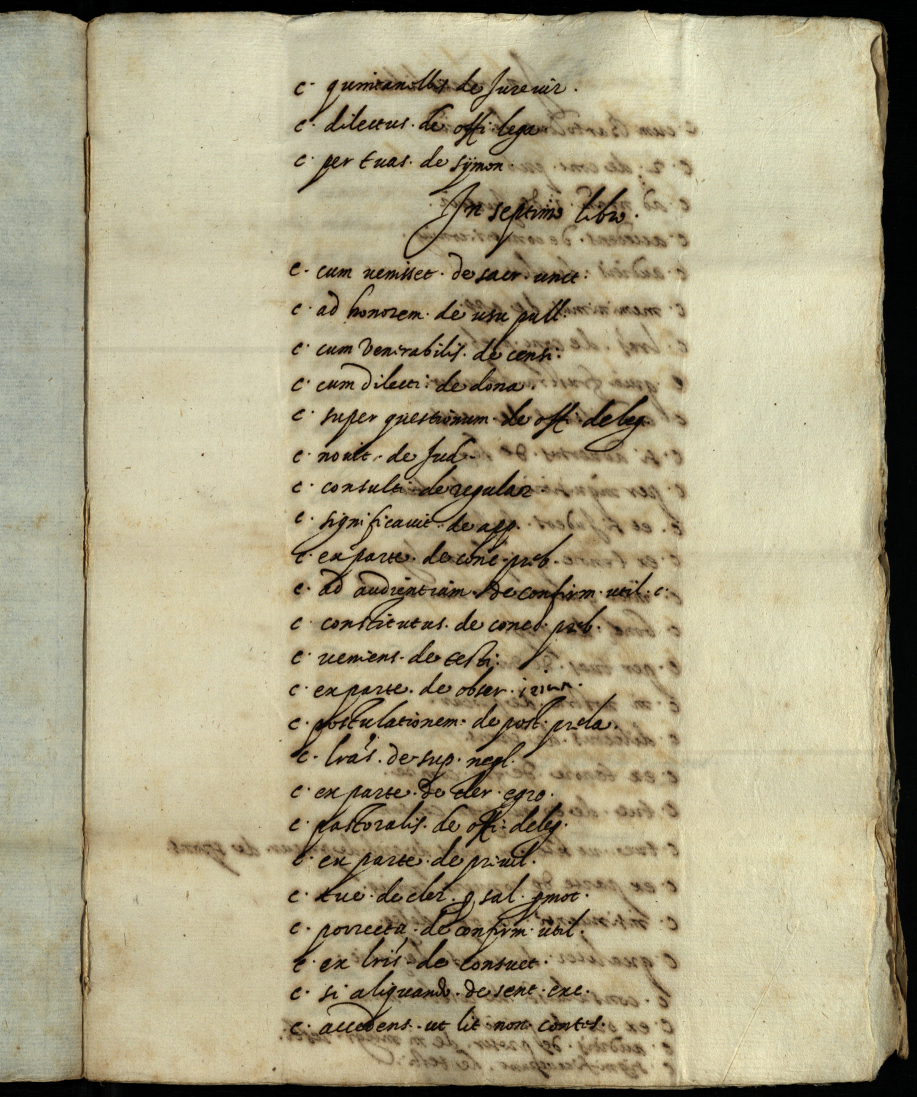 c. quintavallis de Jureiur.
c. dilectus. de offi. lega
c. per tuas. de sÿmon.
In septimo libro.
c. cum uenisset. de sacr. unct:
c. ad honorem. de usu pall.
c. cum Venerabilis. de censi:
c. cum dilecti: de dona.
c. super questionum. de offi. deleg.
c. nouit. de Jud.
c. consulti. de regular
c. significauit. de app.
c. ex parte. de conc. preb.
c. ad audientiam. de confirm. util. c:
c. constitutus. de conced. preb.
c. ueniens. de testi:
c. ex parte. de obser. ieiun.
c. postulationem. de post. prela.
c. lrãs. de sup. negl.
c. ex parte. de cler. egro.
c. pastoralis. de offi. deleg.
c. ex parte. de priuil.
c. tue. de cler. p sal. pmot.
c. porrecta. de confirm. util.
c. ex lris. de consuet.
c. si aliquando. de sent. exc.
c. accedens. ut lit. non. contes.